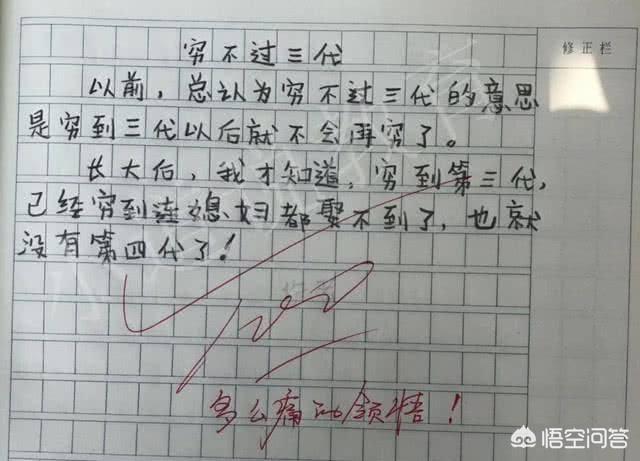 修正栏
穷不过三代
以前，总认为穷不过三代的意思
是穷到三代以后就不会再穷了。
长大后，我才知道，穷到第三代，
已经穷到连媳妇都娶不到了，也就
没有第四代了！
100
多么痛的领悟！
悟空问答